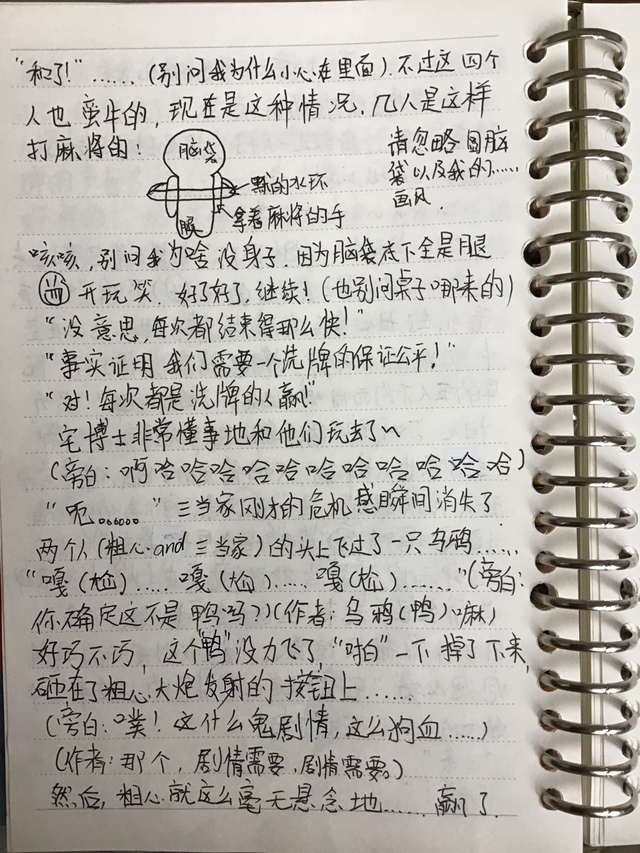 "和了!"……(别问我为什么小心在里面).不过这四个
人也蛮牛的,现在是这种情况,几人是这样
打麻将的:
脑袋
腿
飘的水环
拿着麻将的手
请忽略圆脑
袋以及我的……
画风.
咳咳,别问我为啥没身子,因为脑袋底下全是腿
开玩笑.好了好了,继续!(也别问桌子哪来的)
"没意思,每次都结束得那么快!"
"事实证明我们需要一个洗牌的保证公平!"
"对!每次都是洗牌的人赢!"
宅博士非常懂事地和他们玩去了~
(旁白:啊哈哈哈哈哈哈哈哈哈哈哈)
"呃。。。。。。"三当家刚才的危机感瞬间消失了
两个人(粗心and三当家)的头上飞过了一只乌鸦……
"嘎(尬)……嘎(尬)……嘎(尬)……"(旁白:
你确定这不是鸭吗?)(作者:乌鸦(鸭)嘛)
好巧不巧,这个"鸭"没力飞了,"啪"一下掉了下来,
砸在了粗心大炮发射的按钮上……
(旁白:噗!这什么鬼剧情,这么狗血……)
(作者:那个,剧情需要,剧情需要。)
然后,粗心就这么毫无悬念地……赢了.